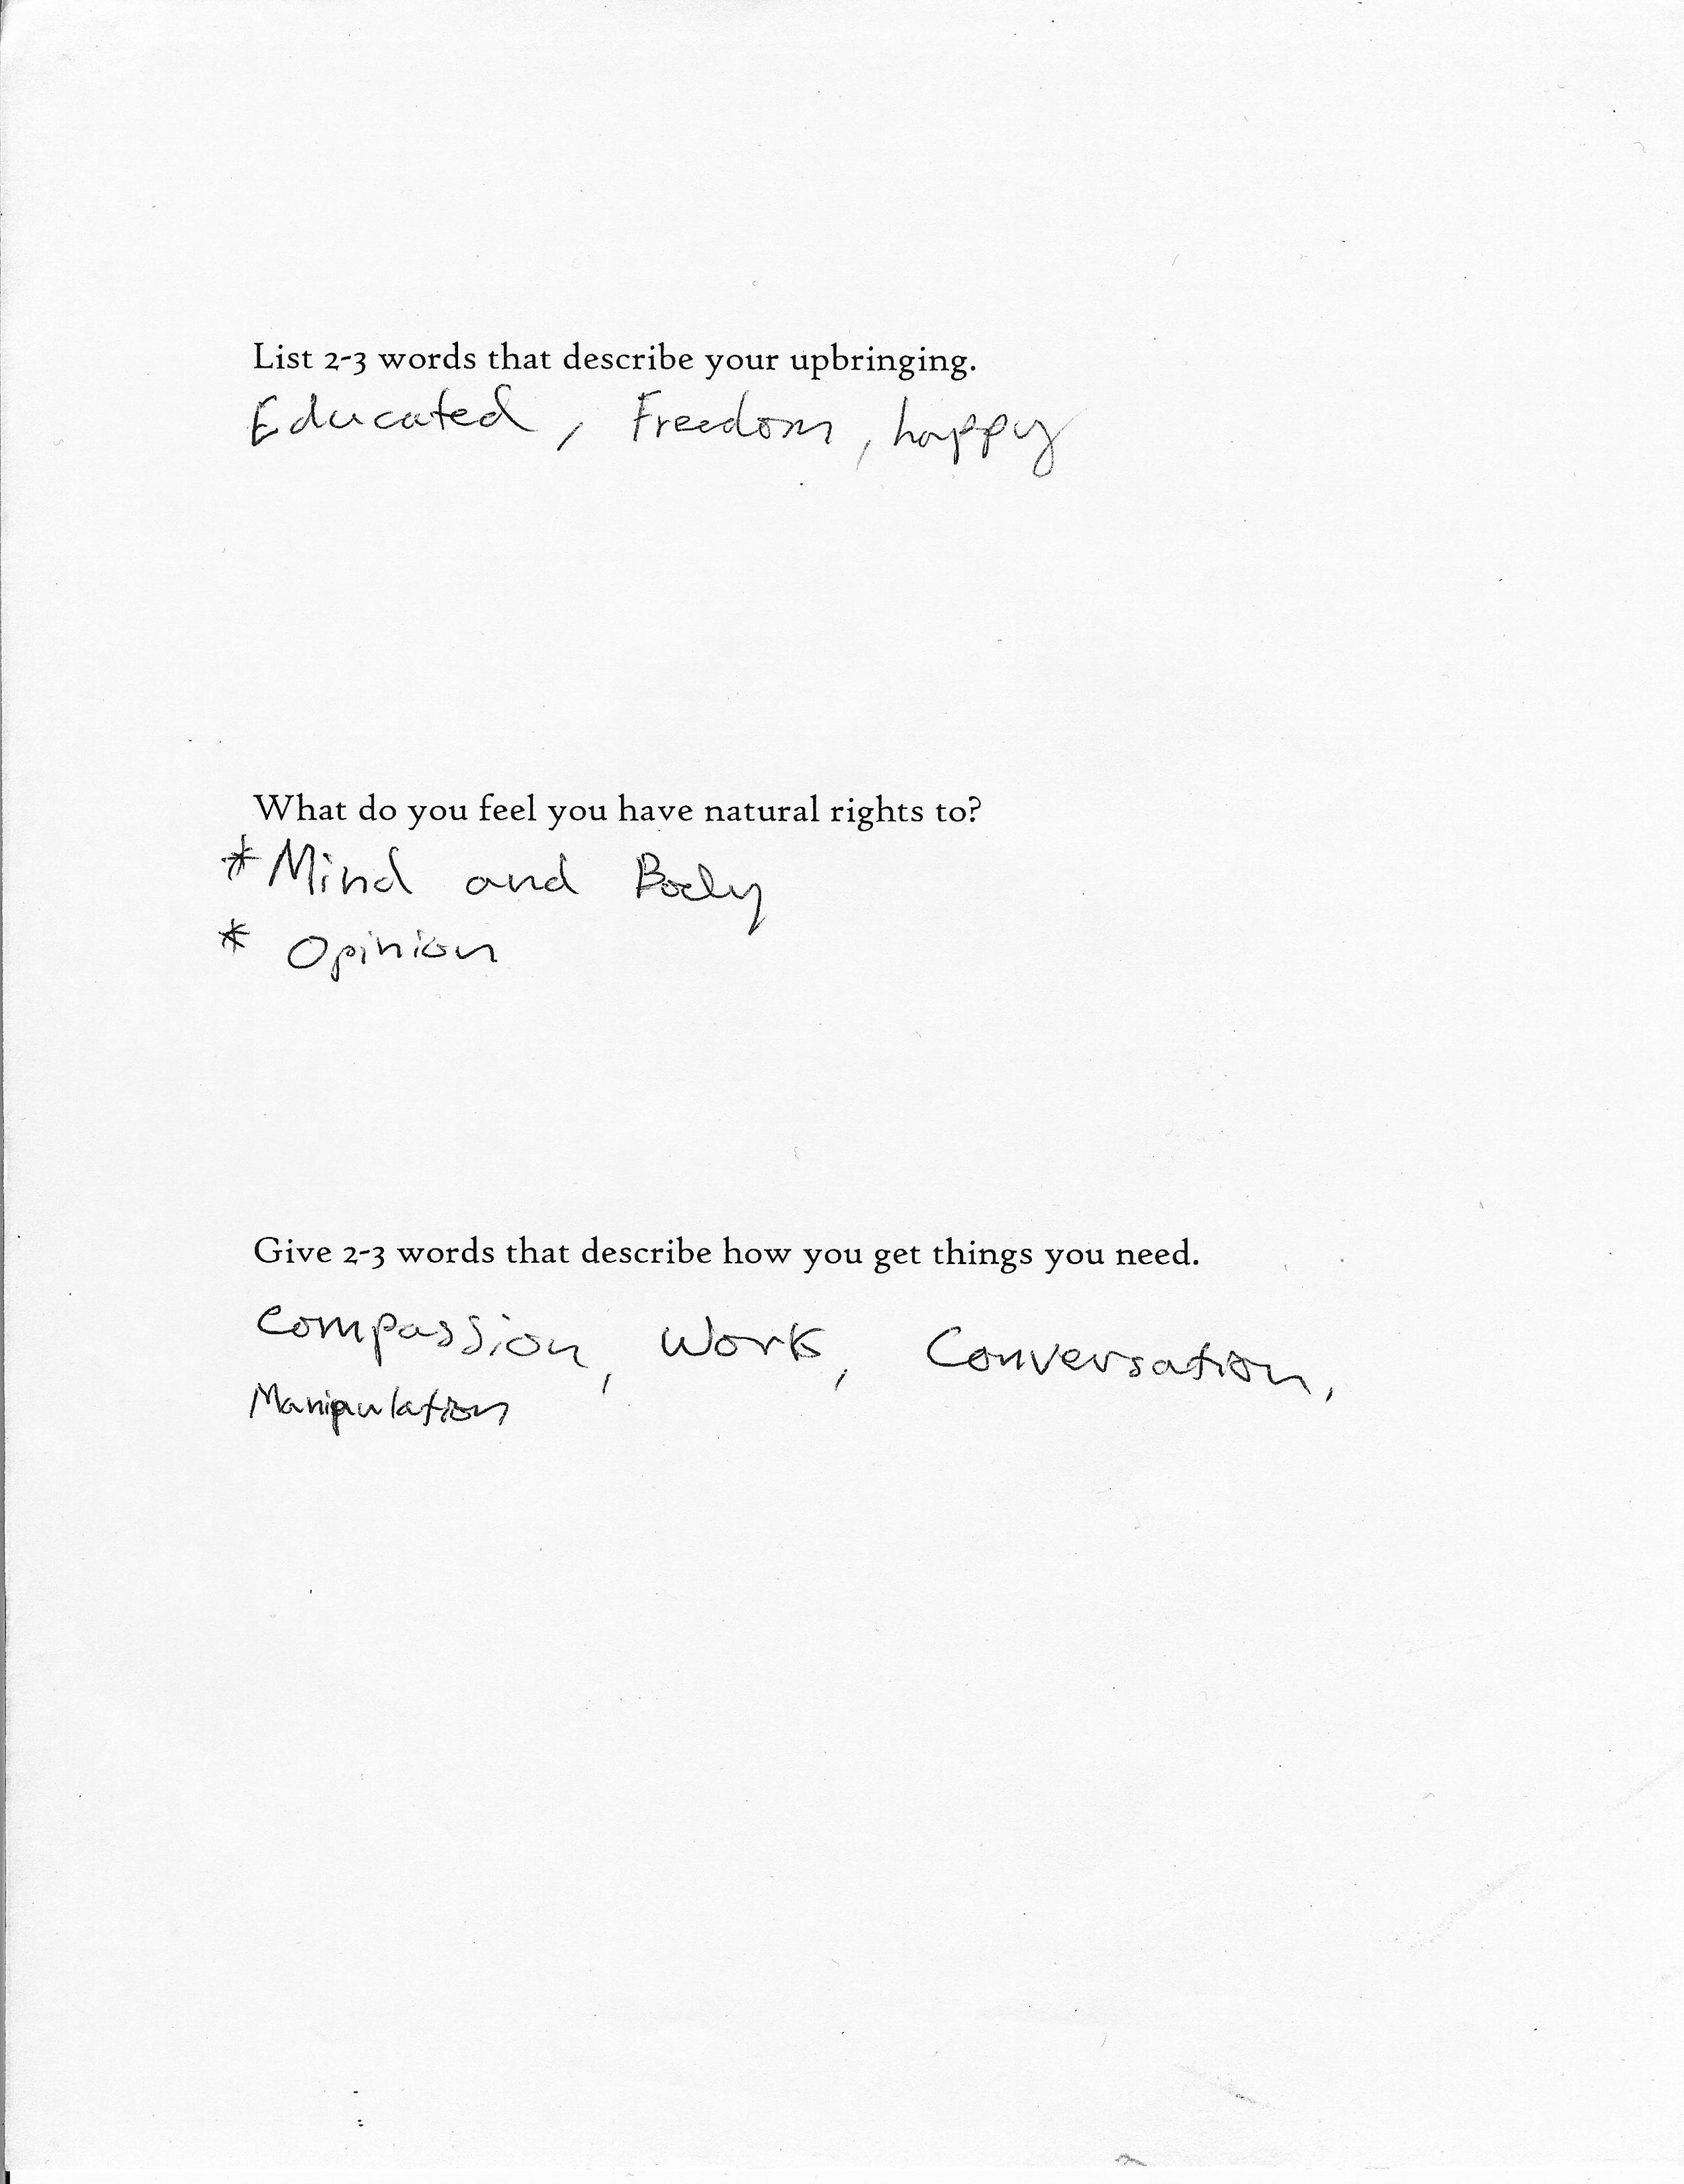 List 2-3 words that describe your upbringing.
Educated, Freedom, happy
What do you feel you have natural rights to?
* Mind and Body
* Opinion
Give 2-3 words that describe how you get things you need.
Compassion, Work, Conversation,
Manipulation